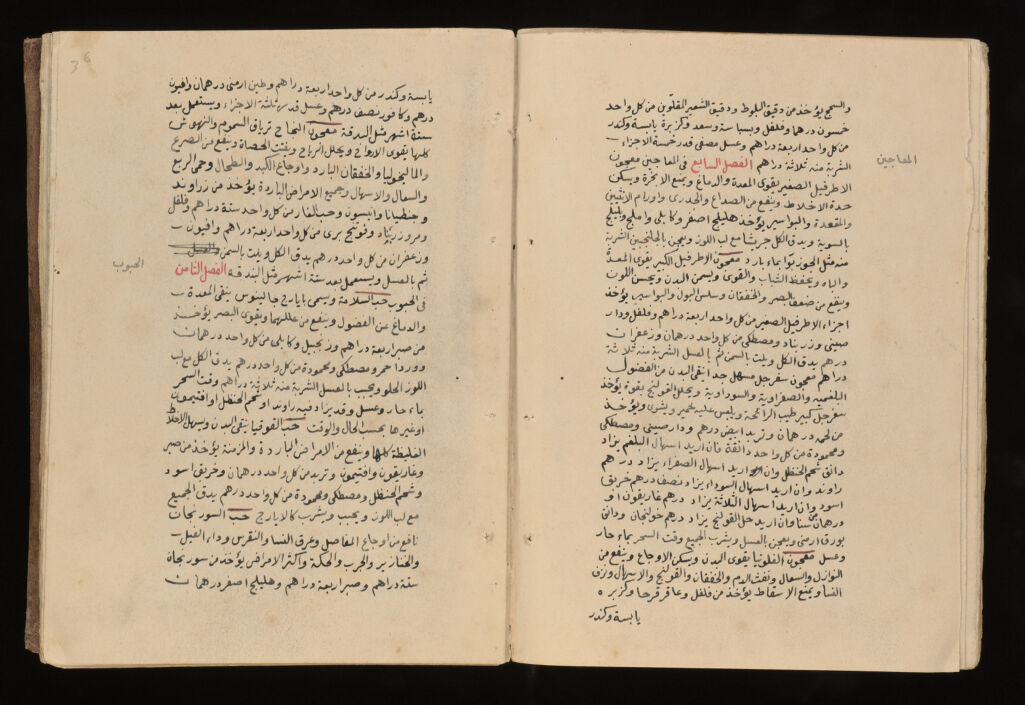 والسمج يؤخذ من دقيق البلوط ودقيق الشعير المقلوين من كل واحد
خمسون درهما وفلفل وبسباسة وسعد وكزبرة يابسة وكندر
من كل واحد اربعة دراهم وعسل مصفى قدر خمسة الاجزاء
الشربة منه ثلاثة دراهم الفصل السابع فى المعاجين معجون
المعاجين
الاطرفيل الصغير يقوى المعدة والدماغ ويمنع الابخرة ويسكن
حدة الاخلاط وينفع من الصداع والجدرى واورام الانثيين
والمقعدة والبواسير يؤخذ هليلج اصفر وكابلى واملج وبليلج
بالسوية ويدق الكل جريشا مع لب اللوز ويعجن بالجلنجبين الشربة
منه مثل الجوز بكرة بماء بارد معجون الاطرفيل الكبير يقوى المعدة
والباه ويحفظ الشباب والقوى ويسمن البدن ويحسن اللون
وينفع من ضعف البصر والخفقان وسلس البول والبواسير يؤخذ
اجزاء الاطرفيل الصغير من كل واحد اربعة دراهم وفلفل ودار
صينى وزرنباد ومصطكى من كل واحد درهمان وزعفران
درهم يدق الكل ويلت بالسمن ثم بالعسل الشربة منه ثلاثة
دراهم معجون سفرجل مسهل جدا ينقى البدن من الفضول
البلغمية والصفراوية والسوداوية ويحلل القولنج بقوة يؤخذ
سفرجل كبير طيب الرائحة ويلبس عليه خمير ويشوى ويؤخذ
من لحمه درهمان وتربد ابيض درهم ودارصينى ومصطكى
ومحمودة من كل واحد دانقة فان اريد اسهال البلغم يزاد
دانق شحم الحنظل وان اريد اسهال الصفراء يزاد درهم
راوند وان اريد اسهال السوداء يزاد نصف درهم خربق
اسود وان اريد اسهال الثلاثة يزاد درهم غاريقون او
درهمان من سنا وان اريد حل القولنج يزاد درهم خولنجان ودانق
بورق ارمنى ويعجن بالعسل ويشرب الجميع وقت السحر بماء حار
وعسل معجون الفلونيا يقوى البدن ويسكن الاوجاع وينفع من
النوازل والسعال ونفث الدم والخفقان والقولنج والاسهال ونزف
النسا ويمنع الاسقاط يؤخذ من فلفل وعاقر قرحا وكزبره
يابسة وكندر
36
يابسة وكندر من كل واحد اربعة دراهم وطين ارمنى درهمان وافيون
درهم وكافور نصف درهم وعسل قدر ثلثة الاجزاء ويستعمل بعد
ستة اشهر مثل البندقة معجون النجاح ترياق السموم والنهوش
كلها يقوى الارواح ويحلل الرياح ويفتت الحصاة وينفع من الصرع
والماليخوليا والخفقان البارد واوجاع الكبد والطحال وحمى الربع
والسعال والاسهال وجميع الامراض الباردة يؤخذ من زراوند
وجنطيانا وانيسون وحب الغار من كل واحد ستة دراهم وفلفل
ومر وزرنباد وفوتنج برى من كل واحد اربعة دراهم وافيون
وزعفران من كل واحد درهم يدق الكل ويلت بالسمن والعسل
ثم بالعسل ويستعمل بعد ستة اشهر مثل البندقه الفصل الثامن
الحبوب
فى الحبوب حب السلامة ويسمى بايارج جالينوس ينقى المعدة
والدماغ عن الفضول وينفع من عللهما ويقوى البصر يؤخذ
من صبر اربعة دراهم وزنجبيل وكابلى من كل واحد درهمان
وورد احمر ومصطكى ومحمودة من كل واحد درهم يدق الكل مع لب
اللوز الحلو ويحبب بالعسل الشربة منه ثلاثة دراهم وقت السحر
بماء حار وعسل وقد يزاد فيه راوند او شحم الحنظل او افتيمون
او غيرها بحسب الحال والوقت حب القوقيا ينقى البدن ويسهل الاخلاط
الغليظة كلها وينفع من الامراض الباردة والمزمنة يؤخذ من صبر
وغاريقون وافتيمون وتربد من كل واحد درهمان وخربق اسود
وشحم الحنظل ومصطكى ومحمودة من كل واحد درهم يدق الجميع
مع لب اللوز ويحبب ويشرب كالايارج حب السورنجان
نافع من اوجاع المفاصل وعرق النسا والنقرس وداء الفيل
والخنازير والجرب والحكة واكثر الامراض يؤخذ من سورنجان
ستة دراهم وصبر اربعة دراهم وهليلج اصفر درهمان